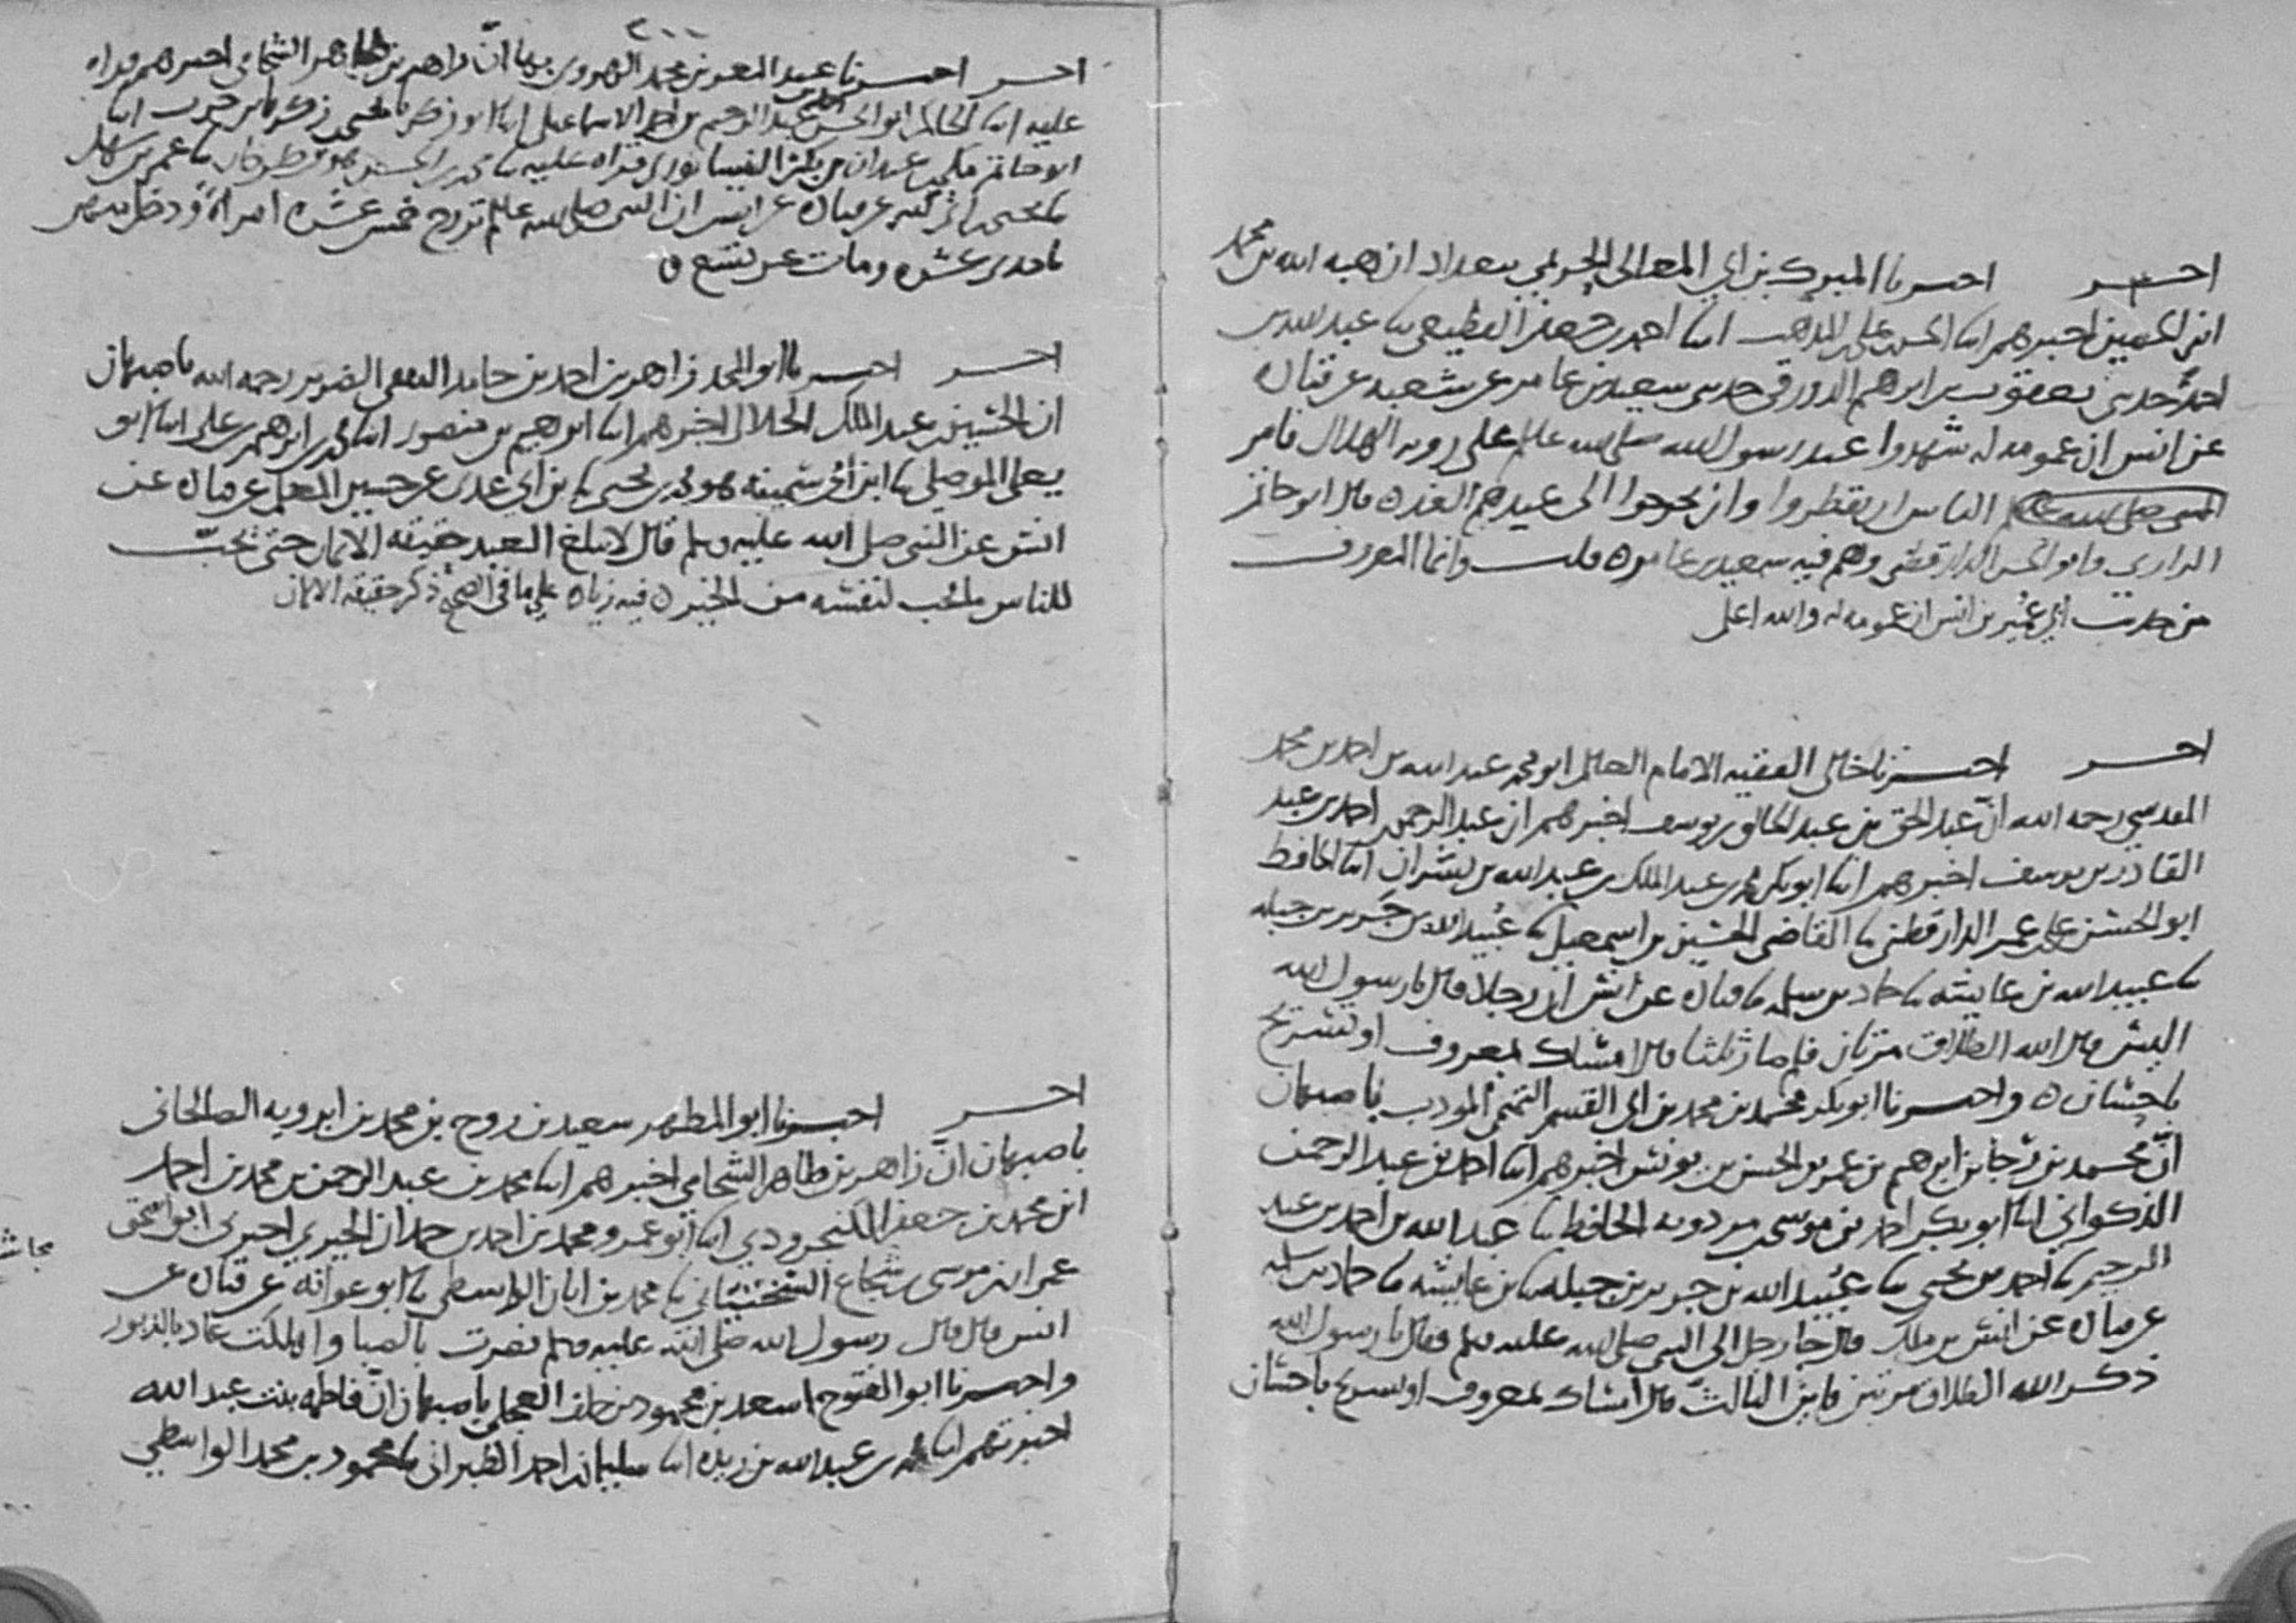 احبر احبرنا المبرك بن ابي المعالي الحريمي ببغداد ان هبه الله بن محمد
ابن الحصين اخبرهم ابنا الحسن بن علي المذهب ابنا احمد بن جعفر القطيعي نا عبد الله بن
احمد حدثني يعقوب بن ابرهيم الدورقي حدثني سعيد بن عامر عن شعبه عن قتاده
عن انس ان عمومه له شهدوا عند رسول الله صلى الله عليه وسلم على رويه الهلال فامر
النبي صلى الله عليه وسلم الناس ان يفطروا وان يخرجوا الى عيدهم الغد ه قال ابو حاتم
الرازي وابو الحسن الدارقطني وهم فيه سعيد بن عامر ه قلت وانما المعروف
من حديث ابي عمير بن انس ان عمومه له والله اعلم
اخبر اخبرنا خالي الفقيه الامام العالم ابو محمد عبد الله بن احمد بن محمد
المقدسي رحمه الله انّ عبد الحق بن عبد الخالق بن يوسف اخبرهم ان عبد الرحمن بن احمد بن عبد
القادر بن يوسف اخبرهم ابنا ابو بكر محمد بن عبد الملك بن عبد الله بن بشران ابنا الحافظ
ابو الحسن علي بن عمر الدارقطني نا القاضي الحسين بن اسمعيل نا عبيد الله بن جرير بن جبله
نا عبيد الله بن عايشه نا حماد بن سلمه نا قتاده عن انس ان رجلا قال يا رسول الله
اليس قال الله الطلاق مرتان فلم صار ثلثا قال امساك بمعروف او تسريح
باحسان ه واخبرنا ابو بكر محمد بن محمد بن ابي القسم التميمي المودب باصبهان
انّ محمد بن رجا بن ابرهيم بن عمر بن الحسن بن يونس اخبرهم ابنا احمد بن عبد الرحمن
الذكواني ابنا ابو بكر احمد بن موسى بن مردويه الحافظ نا عبد الله بن احمد بن عبد
الرحيم نا احمد بن يحيى نا عبيد الله بن جرير بن جبله نا بن عايشه نا حماد بن سلمه
عن قتاده عن انس بن ملك قال جا رجل الى النبي صلى الله عليه وسلم فقال يا رسول الله
ذكر الله الطلاق مرتين فاين الثالث قال امساك بمعروف او تسريح باحسان
اخبر اخبرنا عبد المعز بن محمد الهروي بها انّ زاهر بن طاهر الشحامي اخبرهم قراه
عليه ابنا الحاكم ابو الحسن عبد الرحيم بن احمد الاسماعيلي ابنا ابو زكريا يحيى بن زكريا بن حرب ابنا
ابو حاتم مكي بن عبدان بن بكر النيسابوري قراه عليه نا محمد بن الحسن هو بن طرخان نا عمر بن سهل
نا بحر بن كنيز عن قتاده عن انس ان النبي صلى الله عليه وسلم تزوج خمس عشره امراة ودخل منهن
باحدى عشره ومات عن تسع ه
اخبر اخبرنا ابو المجد زاهر بن احمد بن حامد الثقفي الضرير رحمه الله باصبهان
ان الحسين بن عبد الملك الخلال اخبرهم ابنا ابرهيم بن منصور ابنا محمد بن ابرهيم بن علي ابنا ابو
يعلى الموصلي نا ابن ابي سمينه هو محمد بن يحيى نا بن ابي عدي عن حسين المعلم عن قتاده عن
انس عن النبي صلى الله عليه وسلم قال لا يبلغ العبد حقيقه الايمان حتى يحبّ
للناس ما يحب لنفسه من الخير ه فيه زياده على ما في الصحيح ذكر حقيقه الايمان
اخبر اخبرنا ابو المطهر سعيد بن روح بن محمد بن ابرويه الصالحاني
باصبهان انّ زاهر بن طاهر الشحامي اخبرهم ابنا محمد بن عبد الرحمن بن محمد بن احمد
ابن محمد بن جعفر الكنجرودي ابنا ابو عمرو محمد بن احمد بن حمدان الحيري اخبرني ابو اسحق
عمران بن موسى بن مجاشع السختياني نا محمد بن ابان الواسطي نا ابو عوانه عن قتاده عن
انس قال قال رسول الله صلى الله عليه وسلم نصرت بالصبا واهلكت عاد بالدبور
واخبرنا ابو الفتوح اسعد بن محمود بن خلف العجلي باصبهان انّ فاطمه بنت عبد الله
اخبرتهم ابنا محمد بن عبد الله بن ريذه ابنا سليمان بن احمد الطبراني نا محمود بن محمد الواسطي